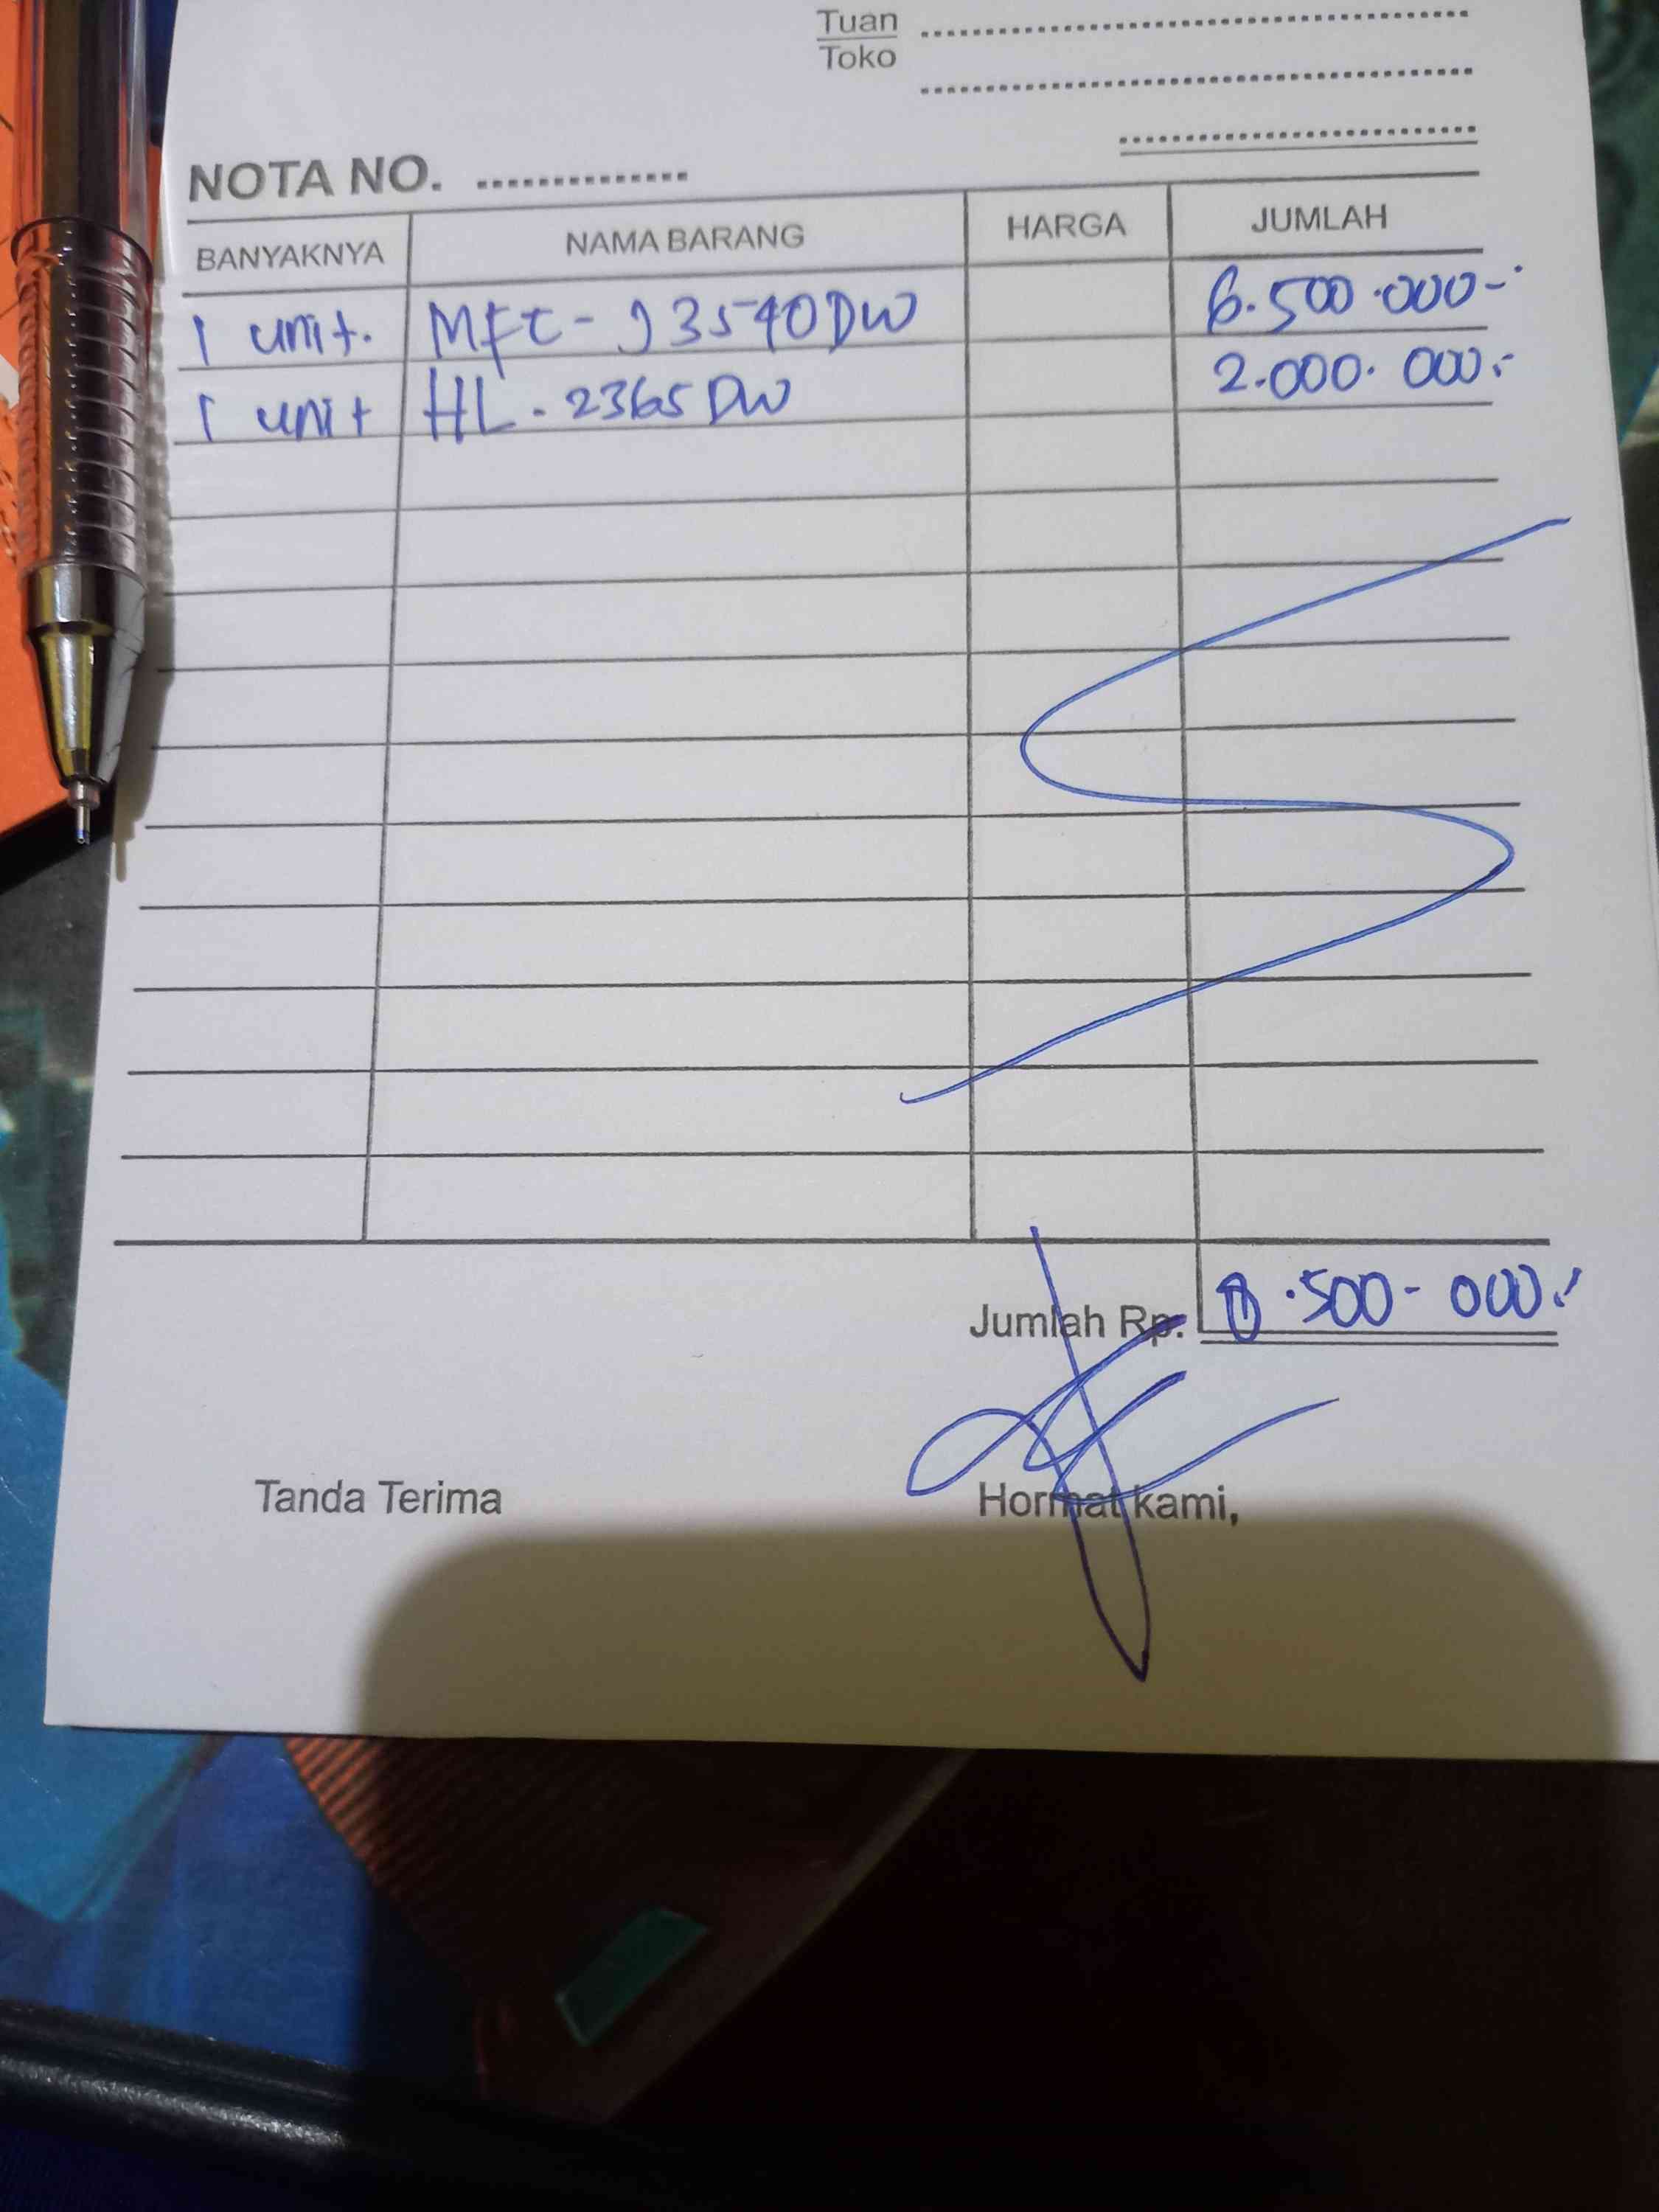 Tuan
Toko
NOTA NO.
BANYAKNYA NAMA BARANG HARGA JUMLAH
1 unit. MFC - J3540DW 6.500.000-
1 unit HL - 2365DW 2.000.000.-
Jumlah Rp. 8.500-000.-
Tanda Terima Hormat kami,